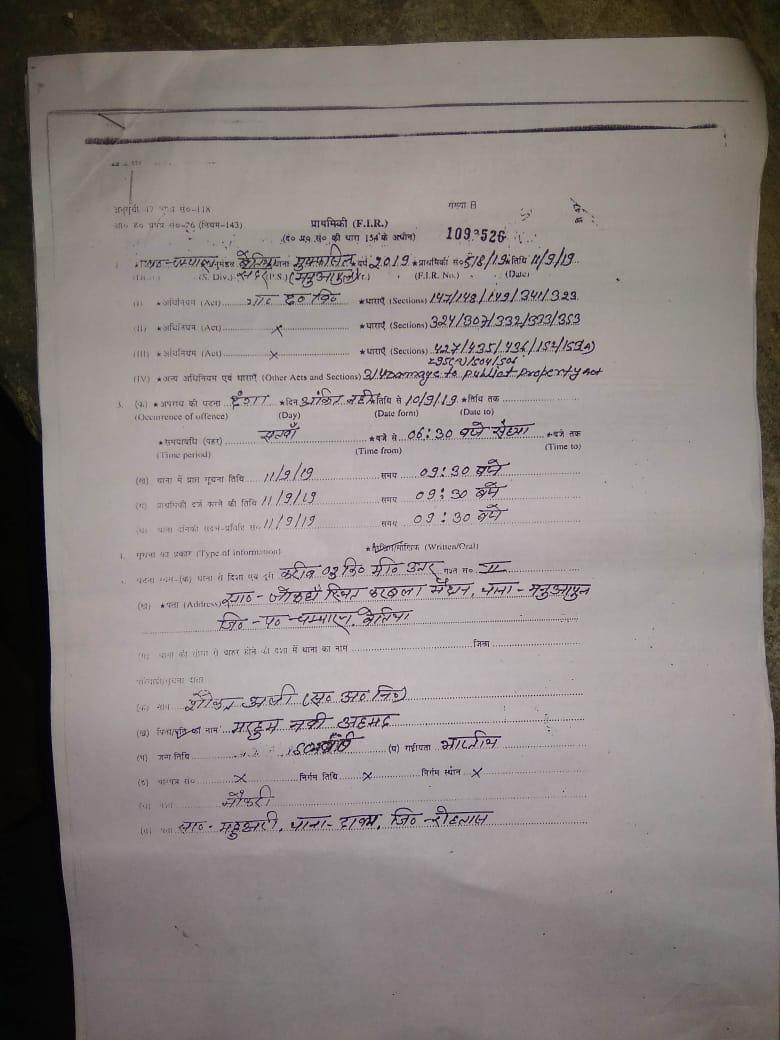 अनुसूची 47 प्रपत्र सं०-118 संख्या B
आ० ह० प्रपत्र सं०-76 (नियम-143) प्राथमिकी (F.I.R.)
(द० प्र० सं० की धारा 154 के अधीन) 1093526
प०-चम्पारण अनुमंडल बेतिया थाना मुफ्फसिल वर्ष 2019 ★प्राथमिकी सं० 518/19 ★तिथि 11/9/19
(S. Div.) सदर (P.S.) (मनुआपुल) (F.I.R. No.) (Date)
(I) ★अधिनियम (Act) भा० द० वि० ★धाराएँ (Sections) 147/148/149/341/323
(II) ★अधिनियम (Act) × ★धाराएँ (Sections) 324/307/332/333/353
(III) ★अधिनियम (Act) × ★धाराएँ (Sections) 427/435/436/152/153(A)
295(A)/504/506
(IV) ★अन्य अधिनियम एवं धाराएँ (Other Acts and Sections) 3/4 Damage to Public Property Act
3. (क) ★अपराध की घटना दंगा ★दिन अंकित नहीं ★तिथि से 10/9/19 ★तिथि तक
(Occurrence of offence) (Day) (Date form) (Date to)
★समयावधि (पहर) सातवाँ ★बजे से 06:30 बजे संध्या ★बजे तक
(Time period) (Time from) (Time to)
(ख) थाना में प्राप्त सूचना तिथि 11/9/19 समय 09:30 बजे
(ग) प्राथमिकी दर्ज करने की तिथि 11/9/19 समय 09:30 बजे
(घ) थाना दैनिकी संदर्भ-प्रविष्टि सं० 11/9/19 समय 09:30 बजे
सूचना का प्रकार (Type of information) ★लिखित/मौखिक (Written/Oral)
घटना स्थल-(क) थाना से दिशा एवं दूरी करीब 03 कि० मी० उत्तर गश्त सं० II
(ख) ★पता (Address) सा०- जोकहाँ स्थित करबला मैदान, थाना- मनुआपुल
जि०-प०-चम्पारण, बेतिया
(ग) थाना की सीमा से बाहर होने की दशा में थाना का नाम जिला
परिवादी/सूचना दाता
(क) नाम शौकत अली (स० अ० नि०)
(ख) पिता/पति का नाम मरहुम नबी अहमद
(ग) जन्म तिथि (घ) राष्ट्रीयता भारतीय
(ङ) पारपत्र सं० × निर्गम तिथि × निर्गम स्थान ×
(च) पेशा नौकरी
(छ) पता सा०- महुआरी, थाना- , जि०-रोहतास